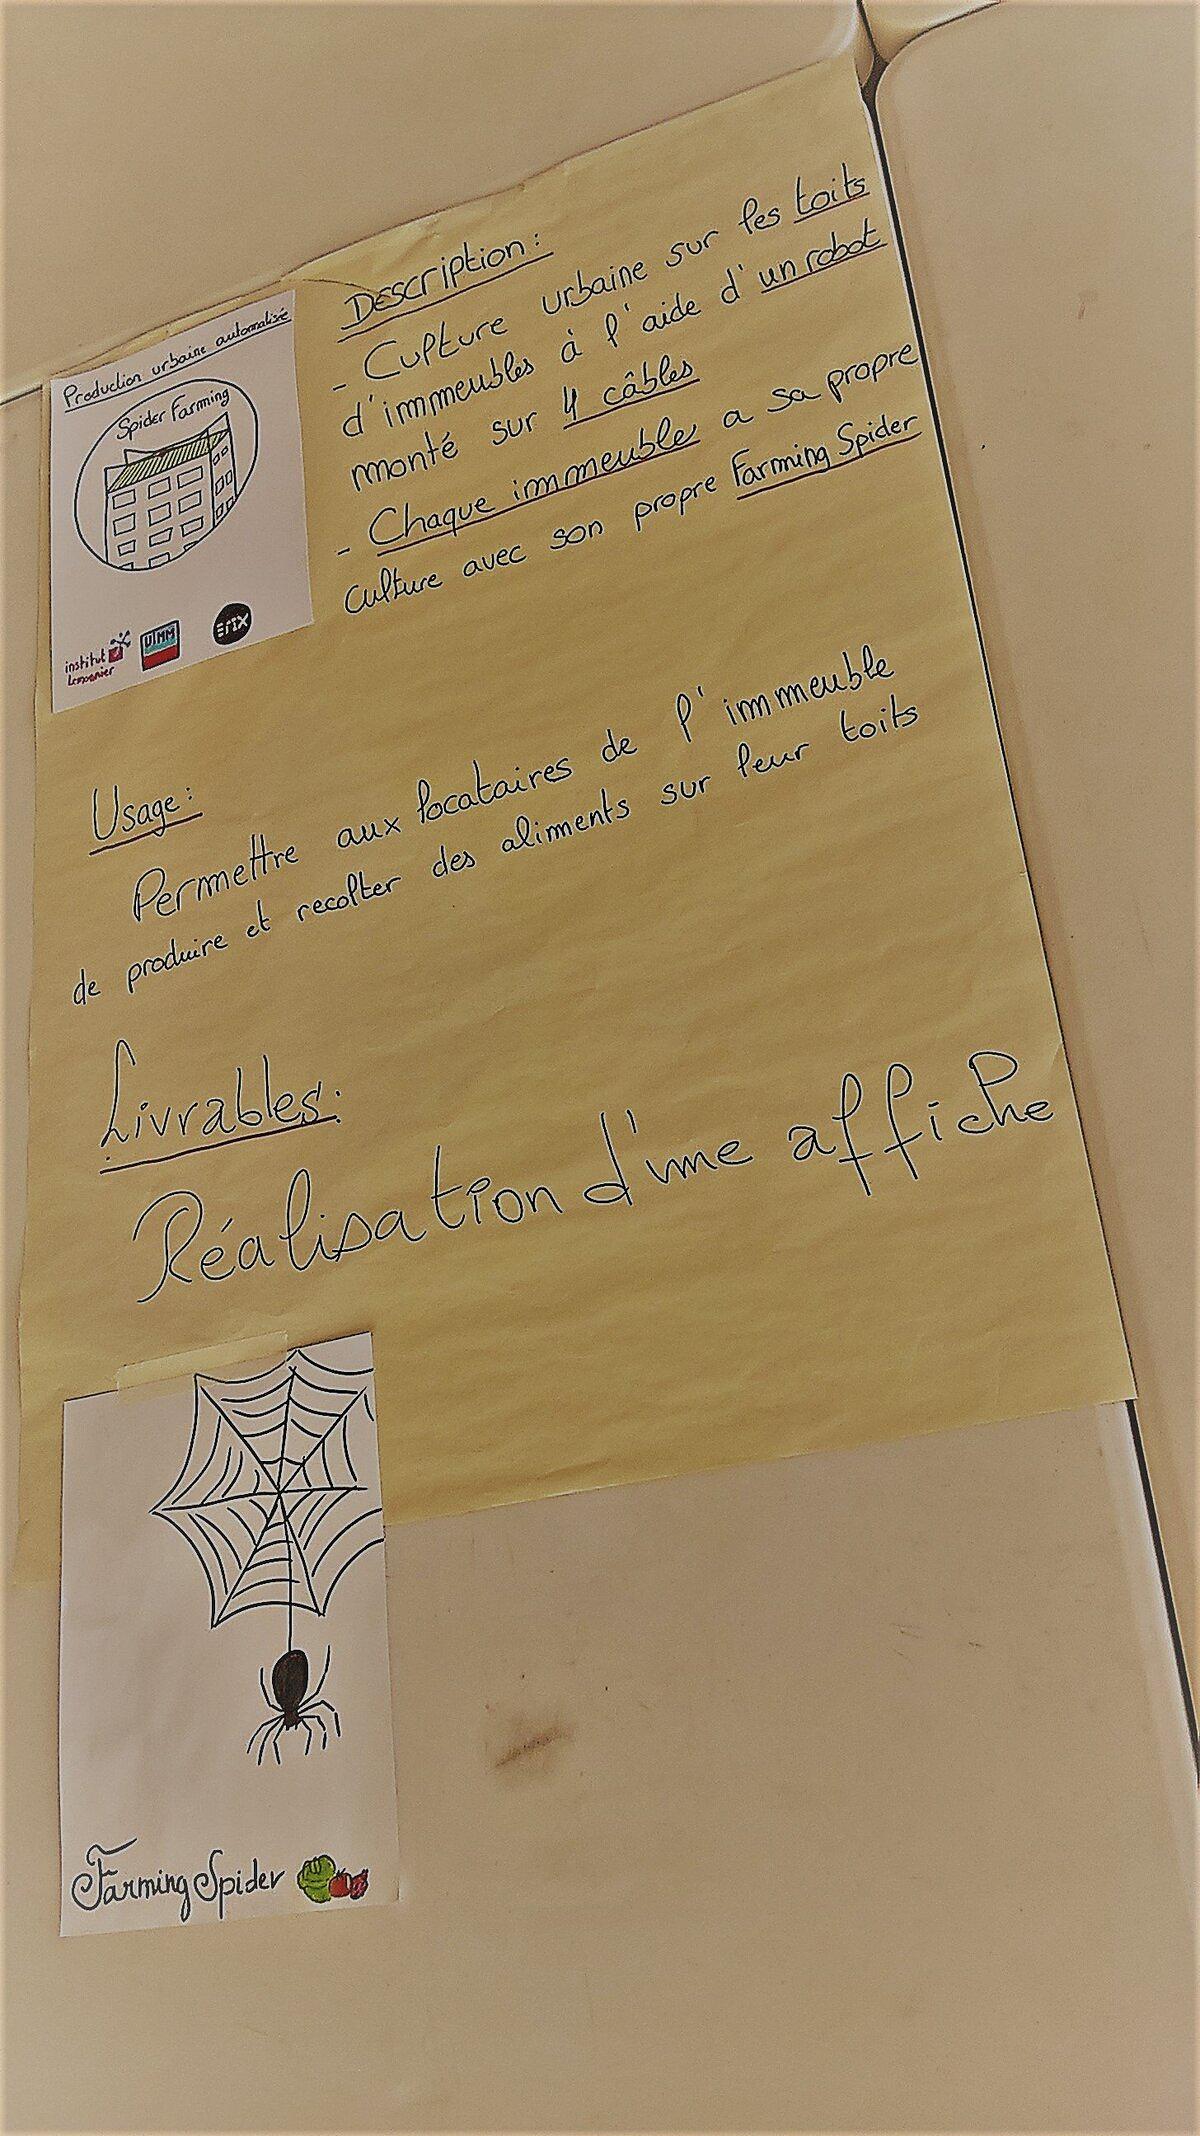 Production urbaine automatisée
Spider Farming
institut
Lemonnier
UIMM
Description:
- Culture urbaine sur les toits
d'immeubles à l'aide d'un robot
monté sur 4 câbles
- Chaque immeuble a sa propre
culture avec son propre Farming Spider
Usage:
Permettre aux locataires de l'immeuble
de produire et recolter des aliments sur leur toits
Livrables:
Réalisation d'une affiche
Farming Spider